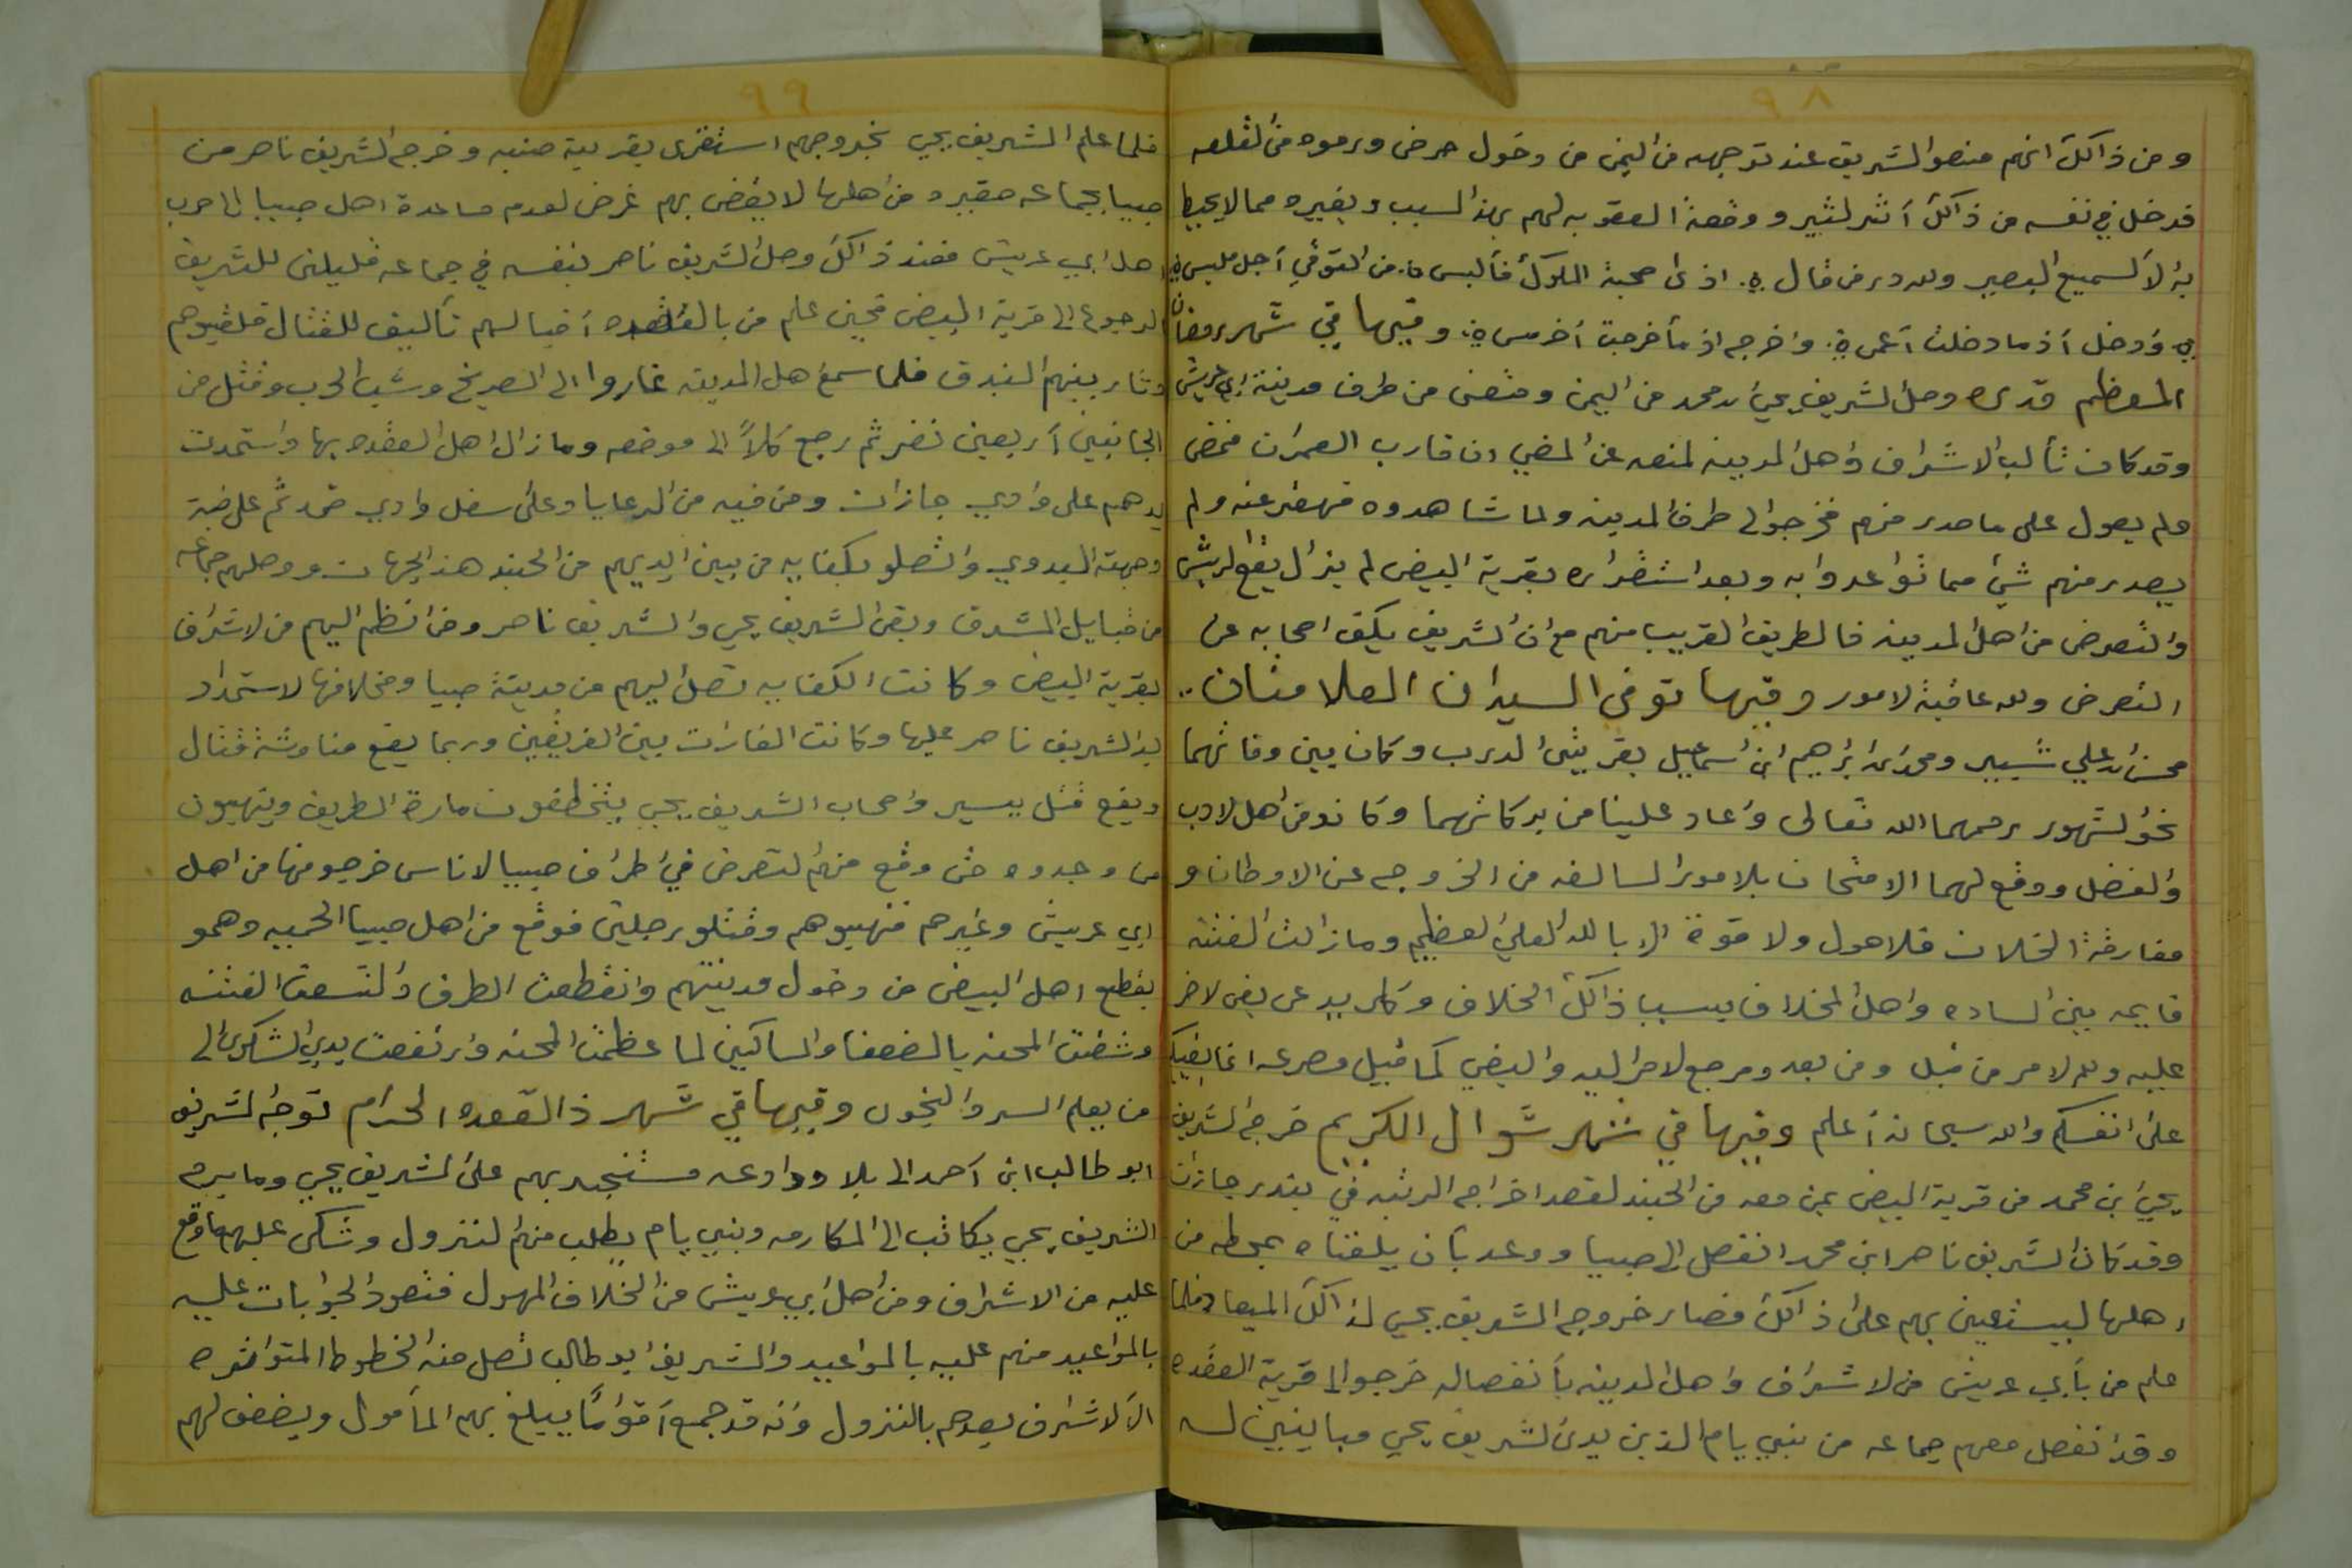 ٩٨
ومن ذالك انهم منعوا الشريف عند توجهه من اليمن من دخول حرض ورموه من القلعه
فدخل في نفسه من ذالك أثر كثير ووضعة العقوبه لهم بهذ السبب وبغيره مما لا يحيط
به لا السميع البصير ولله در من قال ۞ اذى صحبة الملوك فألبس ۞ من التوقي أجل ملبس ۞
۞ وادخل أذ ما دخلت أعمى ۞ واخرج اذ مأخرجت أخرس ۞ وفيها في شهر رمضان
المعظم قدره وصل الشريف يحي ابن محمد من اليمن ومضى من طرف مدينة ابي عريش
وقد كان تألب الاشراف واهل المدينه لمنعه عن المضي ان قارب العمران فمضى
ولم يعول على ما صدر منهم فخرجوا الى طرف المدينه ولما شاهدوه قهقر عنه ولم
يصدر منهم شئ مما تواعدوا به وبعد استقراره بقرية البيض لم يزال يقع
والتعرض من اهل المدينه فالطريق القريب منهم مع ان الشريف يكف اصحابه عن
التعرض ولله عاقبة لامور وفيها توفى السيدان العلامتان ..
محسن ابن علي شبير ومحمد ابن ابراهيم ابن اسماعيل بقريتى الدرب وكان بين وفاتهما
نحو لشهور رحمهما الله تعالى واعاد علينا من بركاتهما وكانو من اهل لادب
والفضل ووقع لهما الامتحان بلامور السالفه من الخروج عن الاوطان و
مفارقة الخلان فلا حول ولا قوة الا بالله العلي العظيم وما زالت الفتنه
قايمه بين الساده واهل المخلاف بسبب ذالك الخلاف وكل يدعى بغى لاخر
عليه ولله لامر من قبل ومن بعد ومرجع لامر اليه والبغي كما قيل مصرعه انما بغيكم
على انفسكم والله سبحانه أعلم وفيها في شهر شوال الكريم خرج الشريف
يحي ابن محمد من قرية البيض بمن معه من الجند لقصد اخراج الرتبه في بندر جازان
وقد كان الشريف ناصر ابن محمد انفصل الى صبيا ووعد بأن يلقناه بمحطه من
اهلها ليستعين بهم على ذالك فصار خروج الشريف يحي لذالك الميعاد فلما
علم من بأبي عريش من لاشراف واهل المدينه بأنفصاله خرجوا الى قرية العقده
وقد انفصل معهم جماعه من بني يام الذين يدى الشريف يحي مباينين له
٩٩
فلما علم الشريف يحي بخروجهم استقرى بقرية صنبه وخرج الشريف ناصر من
صبيا بجماعه حقيره من اهلها لا يقضى بهم غرض لعدم مساعدة اهل صبيا الى حرب
اهل ابي عريش فعند ذالك وصل الشريف ناصر بنفسه في جماعه قليلين للشريف
الرجوع الى قرية البيض فحين علم من بالعقده أقبالهم تأليف للقتال فلقيوهم
وثار بينهم البندق فلما سمع اهل المدينه غاروا الى الصريخ وشب الحرب وقتل من
الجانبين أربعين نفر ثم رجع كلاً الى موضعه وما زال اهل العقده بها واستمدت
يدهم على وادي جازان ومن فيه من الرعايا وعلى سفل وادي ضمد ثم على ضبة
وجهة البدوي واتصلو بكفايه من بين ايديهم من الجند هذ الجهات ووصلهم جماعه
من قبايل المشرق وبقى الشريف يحي والشريف ناصر ومن انظم اليهم من لاشراف
بقرية البيض وكانت الكفايه تصل اليهم من مدينة صبيا ومخلافها لاستمداد
يد الشريف ناصر عليها وكانت الغارات بين الفريقين وربما يقع مناوشة قتال
ويقع قتل يسير واصحاب الشريف يحي يتخطفون مارة الطريق وينهبون
من وجدوه حتى وقع منهم لتعرض في اطراف صبيا لاناس خرجو منها من اهل
ابي عريش وغيرهم فنهبوهم وقتلو رجلين فوقع من اهل صبيا الحميه وهمو
بقطع اهل البيض من دخول مدينتهم وانقطعت الطرق والتسعت الفتنه
وشفت المحنه بالضعفا والمساكين لما عظمت المحنه وارتفعت يدي الشكوى الى
من يعلم السر والنجوى وفيها في شهر ذالقعده الحرام توجه الشريف
ابو طالب ابن أحمد الى بلاد وادعه مستنجد بهم على الشريف يحي وما برح
الشريف يحي يكاتب الى المكارمه وبني يام يطلب منهم لنزول وشكى عليهم ما وقع
عليه من الاشراف ومن اهل ابي عريش من الخلاف المهول فتعود الجوابات عليه
بالمواعيد منهم عليه بالمواعيد والشريف ابو طالب تصل منه الخطوط المتواتره
الى لاشراف يعدهم بالنزول وأنه قد جمع أقوامًا يبلغ بهم المأمول ويضعف لهم